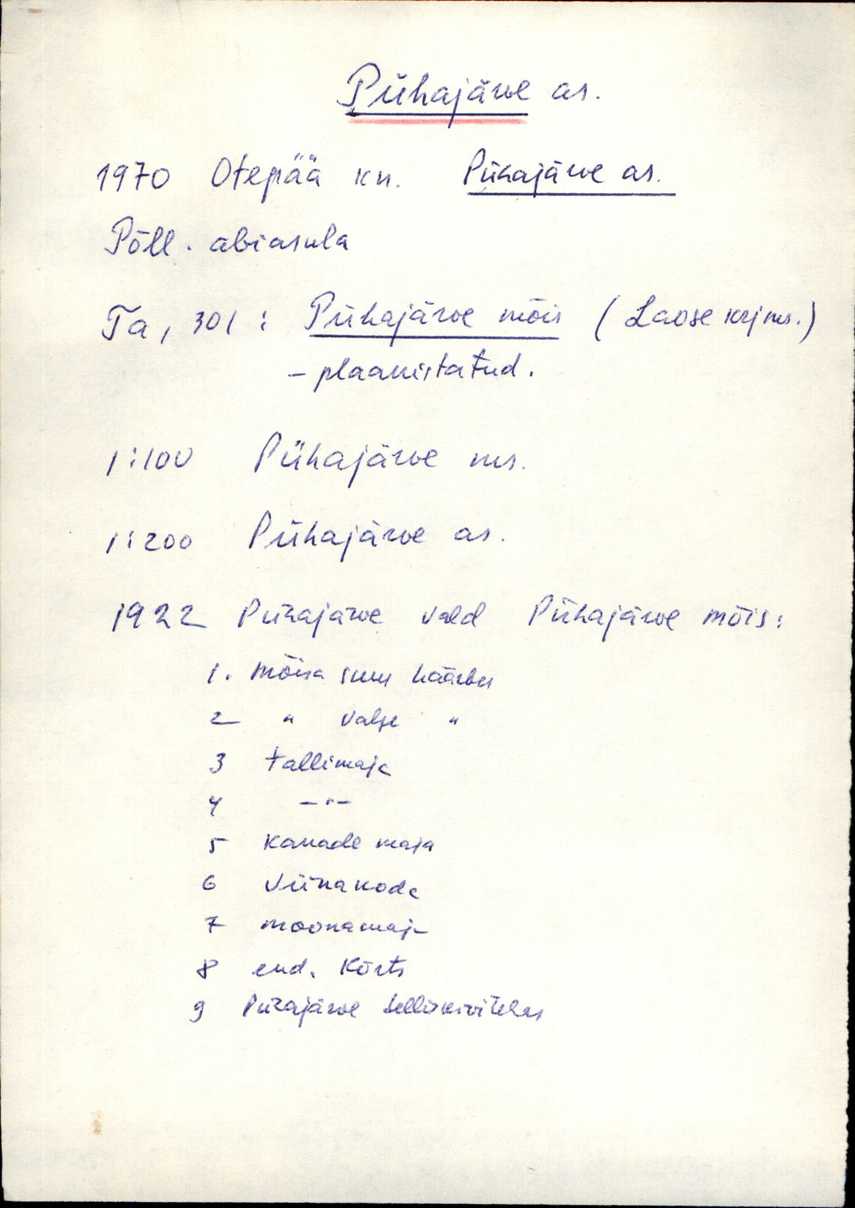 Pühajärve as.
1970 Otepää kn. Pühajärve as.
Põll. abiasula
Ta, 301: Pühajärve mõis (Laose krjms.)
– plaanistatud.
1:100 Pühajärve ms.
1:200 Pühajärve as.
1922 Pühajärve vald Pühajärve mõis:
1. Mõisa suur häärber
2 " valge "
3 tallimaja
4 –"–
5 kanade maja
6 Viinakoda
7 moonamaja
8 end. Kõrts
9 Pühajärve telliskivitehas